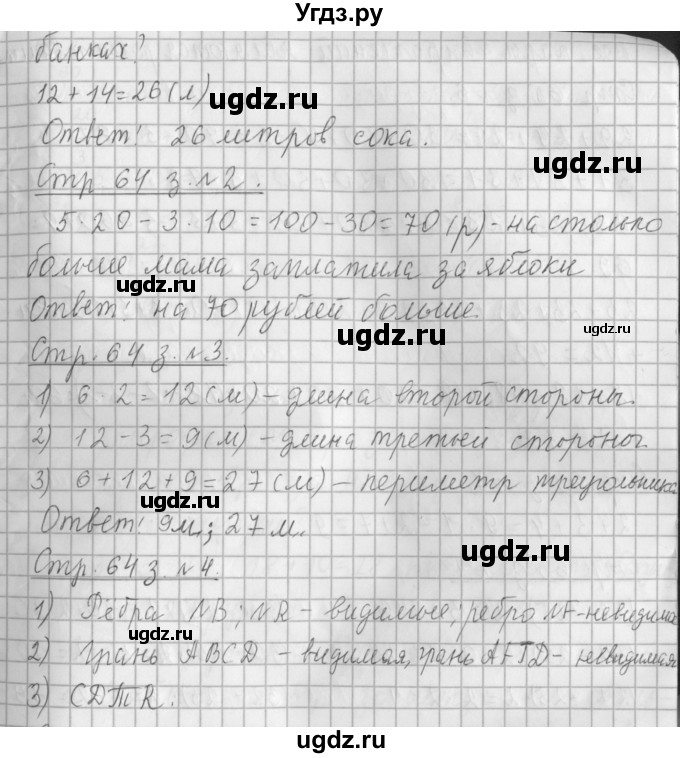 Угдз.ру
банках?
12 + 14 = 26 (л)
Ответ: 26 литров сока.
Стр 64 з. №2.
5 · 20 - 3 · 10 = 100 - 30 = 70 (р) - на столько
больше мама заплатила за яблоки
Ответ: на 70 рублей больше.
Стр. 64 з. №3.
1) 6 · 2 = 12 (м) - длина второй стороны.
2) 12 - 3 = 9 (м) - длина третьей стороны.
3) 6 + 12 + 9 = 27 (м) - периметр треугольника
Ответ: 9м.; 27 м.
Стр. 64 з. №4.
1) Рёбра NB; NR - видимые; ребро NF-невидимо
2) Грань ABCD - видимая, грань AFTD - невидимая
3) CDTR.
ugdz.ru
ugdz.ru
ugdz.ru
ugdz.ru
ugdz.ru
ugdz.ru
ugdz.ru
ugdz.ru
ugdz.ru
ugdz.ru
ugdz.ru
ugdz.ru